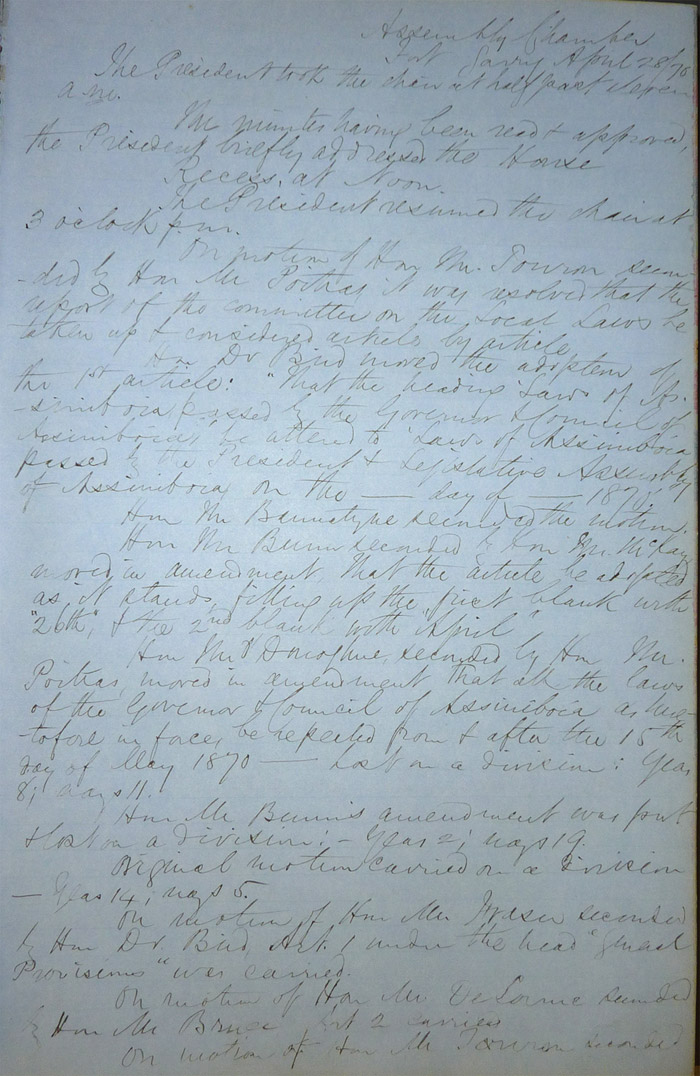 Assembly Chamber
Fort Garry April 28/70
The President took the chair at half past eleven
a.m.
The minutes having been read & approved,
the President briefly addressed the House
Recess at Noon.
The President resumed the chair at
3 o'clock p.m.
On motion of Hon Mr. Touron secon
-ded by Hon Mr Poitras it was resolved that the
report of the committee on the Local Laws be
taken up & considered article by article.
Hon Dr Bird moved the adoption of
the 1st article: "That the heading 'Laws of As-
-siniboia passed by the Governor & Council of
Assiniboia' be altered to 'Laws of Assiniboia
passed by the President & Legislative Assembly
of Assiniboia on the — day of — 1870.'"
Hon Mr Bannatyne seconded the motion.
Hon Mr Bunn seconded by Hon Mr. McKay
moved in amendment, That the article be adopted
as it stands, filling up the first blank with
"26th", & the 2nd blank with April"
Hon Mr O'Donoghue, seconded by Hon Mr.
Poitras, moved in amendment that all the laws
of the Governor & Council of Assiniboia as here-
-tofore in force, be repealed from & after the 15th
day of May 1870 — Lost on a division: Yeas
8; nays 11.
Hon Mr Bunn's amendment was put
& lost on a division: - Yeas 2; nays 19.
Original motion carried on a Division
— Yeas 14; nays 5.
On motion of Hon Mr Fraser seconded
by Hon Dr. Bird, Art. 1 under the head "General
Provisions" was carried.
On motion of Hon Mr DeLorme seconded
by Hon Mr Bruce Art 2 carried
On motion of Hon Mr Touron seconded